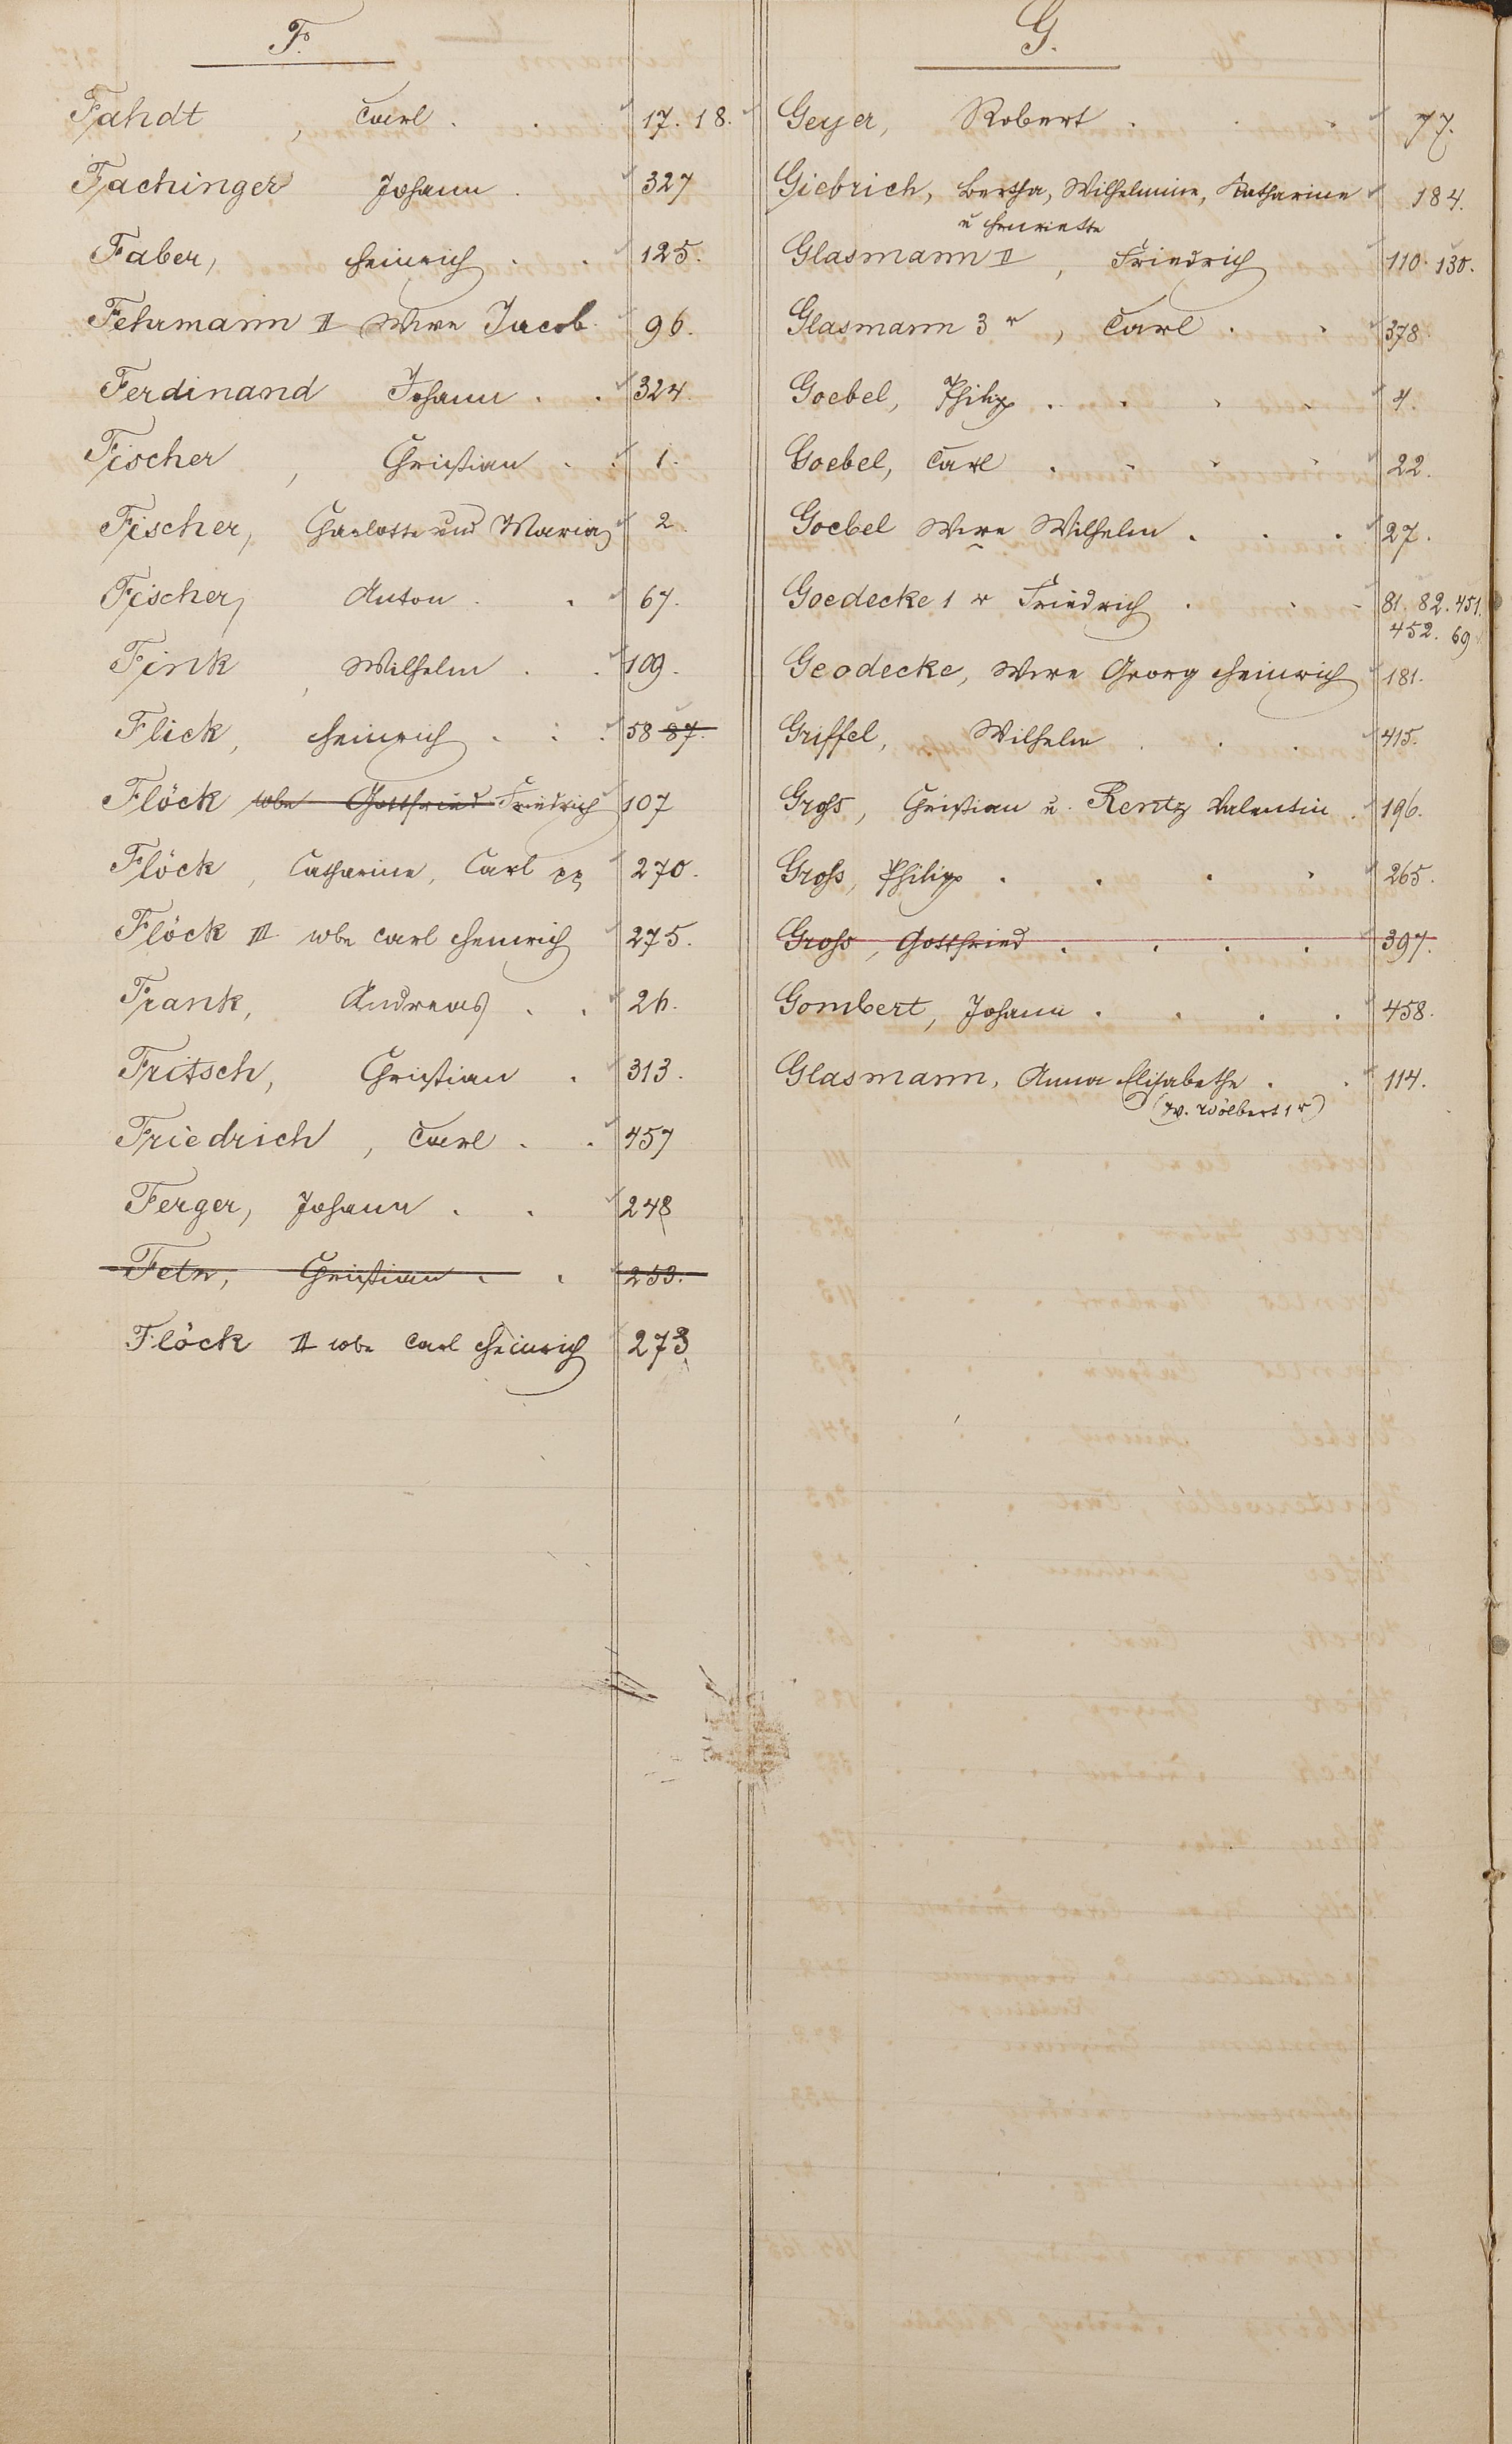 F.
Fahdt, Carl . . 17. 18.
Fachinger Johann . 327
Faber, Heinrich . . 125.
Fehrmann II Wwe Jacob 96.
Ferdinand Johann . . 324.
Fischer, Christian . . 1.
Fischer, Charlotte und Maria 2.
Fischer, Anton . . 67.
Fink, Wilhelm . . 109.
Flick, Heinrich . . . 58 87.
Flöck wbe Gottfried Friedrich 107
Flöck, Catharine, Carl pp 270.
Flöck III wbe Carl Heinrich 275.
Frank, Andreas . . 26.
Fritsch, Christian . 313.
Friedrich, Carl . . 457
Ferger, Johann . . 248
Fetz, Christian . . 253.
Flöck II wbe Carl Heinrich 273
G.
Geyer, Robert . . . 77.
Giebrich, Bertha, Wilhelmine, Katharine 184.
u Henriette
Glasmann II, Friedrich 110. 130.
Glasmann 3r, Carl . . 378.
Goebel, Philipp . . . . 4.
Goebel, Carl . . . . 22.
Goebel Wwe Wilhelm . . . 27.
Goedecke 1r Friedrich . . . 81. 82. 451.
452. 69
Geodecke, Wwe Georg Heinrich 181.
Griffel, Wilhelm . . . 415.
Groß, Christian u. Rentz Valentin . 196.
Groß, Philipp . . . . 265.
Groß, Gottfried . . . . 397.
Gombert, Johann . . . . 458.
Glasmann, Anna Elisabethe . . 114.
(W. Wölbert 1r)